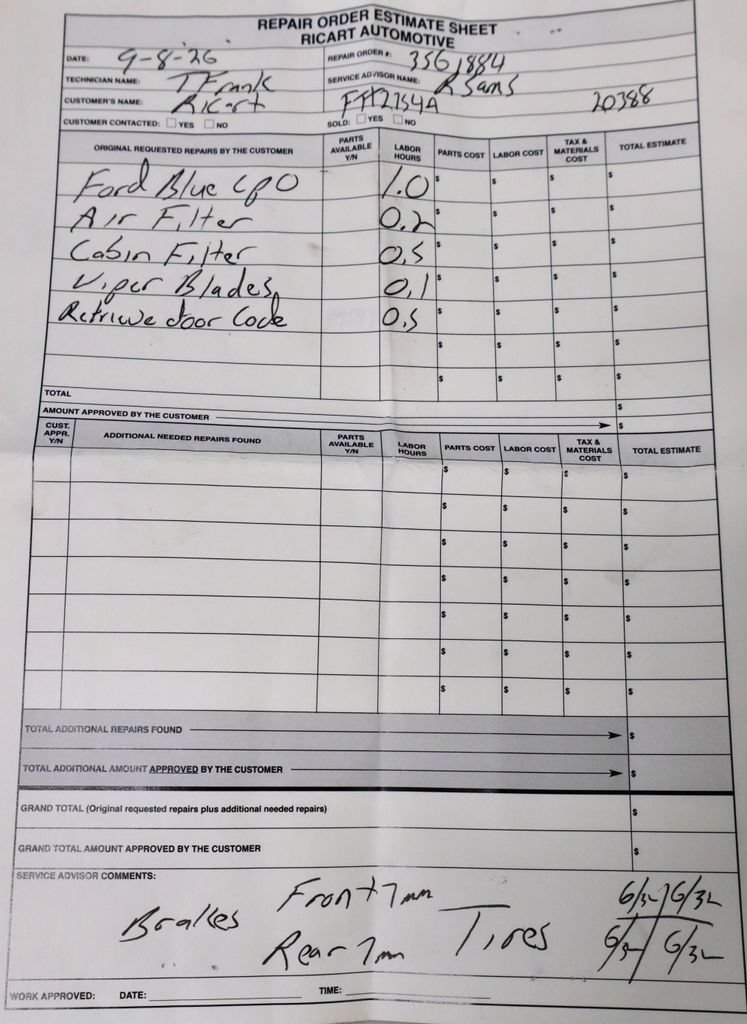 REPAIR ORDER ESTIMATE SHEET
RICART AUTOMOTIVE
DATE: 9-8-26 REPAIR ORDER #: 3561884
TECHNICIAN NAME: T Frank SERVICE ADVISOR NAME: R Sams
CUSTOMER'S NAME: Ricart FTT2154A 20388
CUSTOMER CONTACTED: YES NO SOLD: YES NO
ORIGINAL REQUESTED REPAIRS BY THE CUSTOMER PARTS AVAILABLE Y/N LABOR HOURS PARTS COST LABOR COST TAX & MATERIALS COST TOTAL ESTIMATE
Ford Blue CPO 1.0 $ $ $ $
Air Filter 0.2 $ $ $ $
Cabin Filter 0.5 $ $ $ $
Wiper Blades 0.1 $ $ $ $
Retrieve door Code 0.5 $ $ $ $
$ $ $ $
$ $ $ $
TOTAL $
AMOUNT APPROVED BY THE CUSTOMER $
CUST. APPR. Y/N ADDITIONAL NEEDED REPAIRS FOUND PARTS AVAILABLE Y/N LABOR HOURS PARTS COST LABOR COST TAX & MATERIALS COST TOTAL ESTIMATE
$ $ $ $
$ $ $ $
$ $ $ $
$ $ $ $
$ $ $ $
$ $ $ $
$ $ $ $
TOTAL ADDITIONAL REPAIRS FOUND $
TOTAL ADDITIONAL AMOUNT APPROVED BY THE CUSTOMER $
GRAND TOTAL (Original requested repairs plus additional needed repairs) $
GRAND TOTAL AMOUNT APPROVED BY THE CUSTOMER $
SERVICE ADVISOR COMMENTS:
Brakes Front 7mm Tires 6/32 6/32
Rear 7mm 6/32 6/32
WORK APPROVED: DATE: TIME: